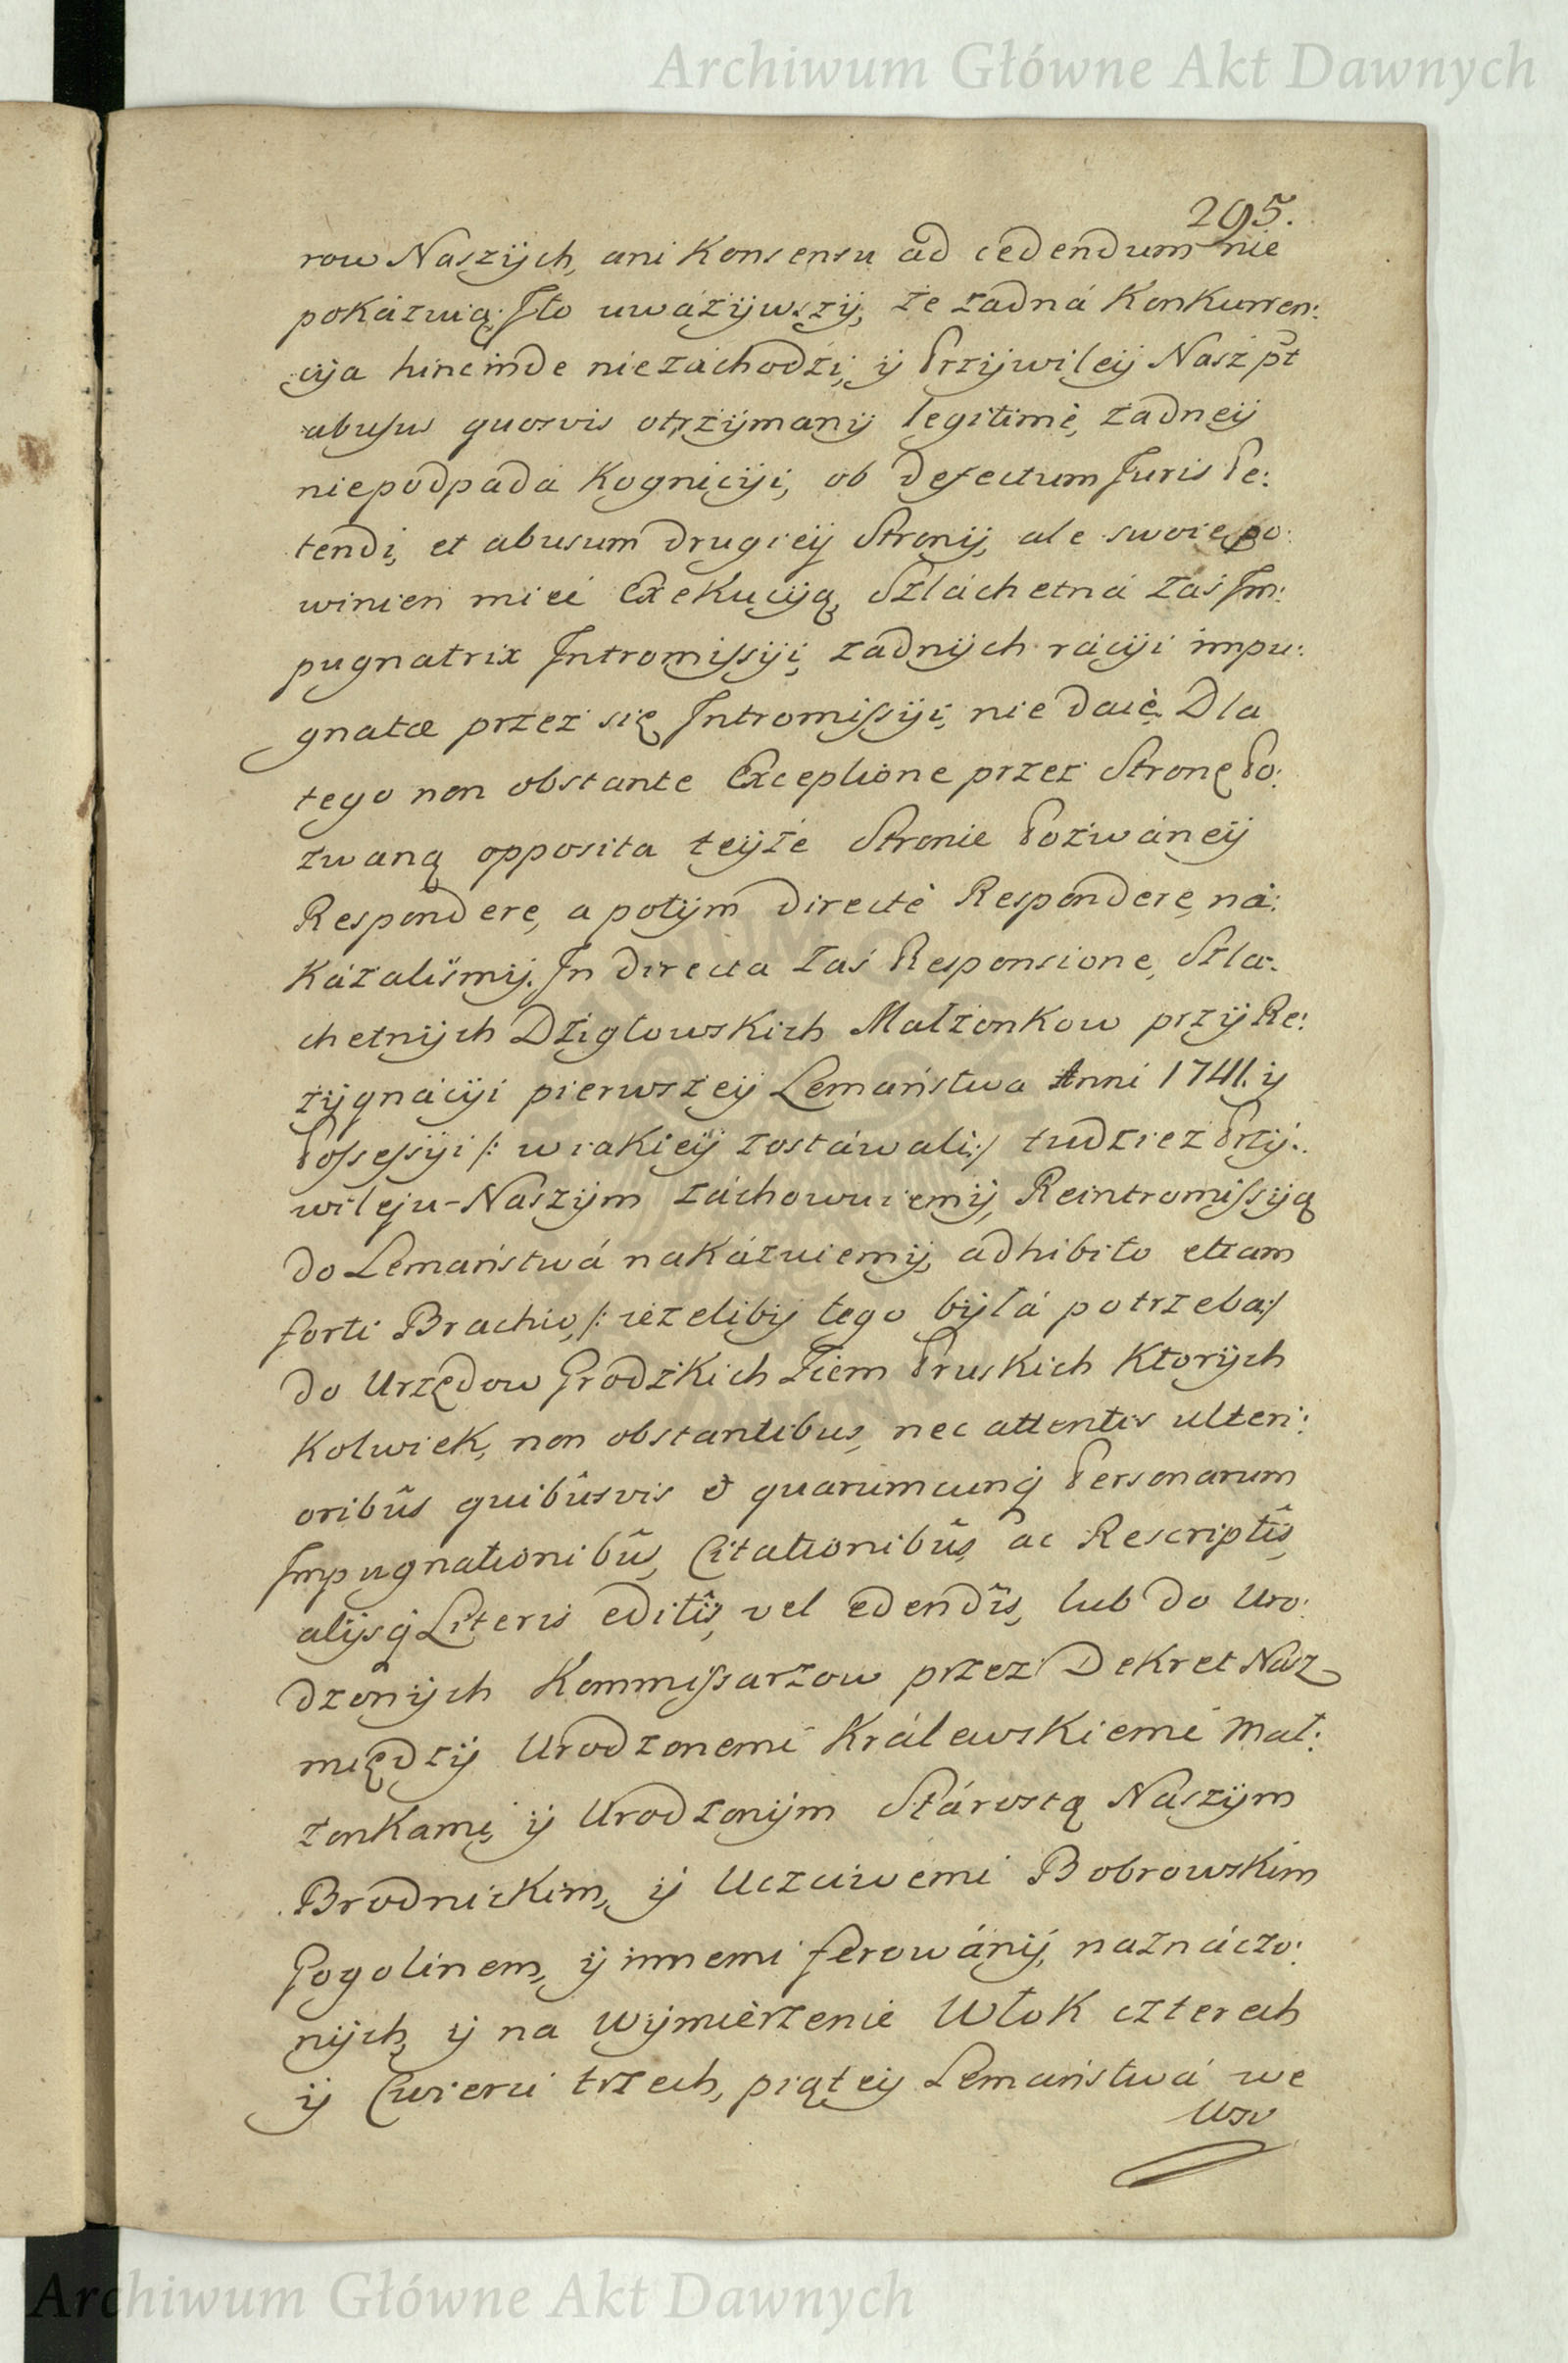 Archiwum Główne Akt Dawnych
295.
row Naszÿch, ani Konsensu ad cedendum nie
pokázuią; Jto uwáżÿwszÿ, że żadná Konkurren:
cÿa hincinde niezáchodzi, ÿ Przÿwileÿ Nasz pt
abusus quosvis otrzÿmanÿ legitimè, żadneÿ
niepodpadá Kognicÿi, ob defectum Juris Pe:
tendi, et abusum drugieÿ Stronÿ, ale swoię po:
winien mieć Exekucÿą, Szláchetná zaś Im:
pugnatrix Intromissÿi, żadnÿch rácÿi impu:
gnatæ przez się Intromissÿi, nie daię. Dla
tego non obstante Exceptione przez Stronę Po:
zwaną opposita teÿże Stronie Pozwáneÿ
Respondere, a potÿm directè Respondere ná:
kázaliśmÿ. In directa zaś Responsione, Szla:
chetnÿch Dzigłowskich Małżonkow przÿ Re:
zÿgnácÿi pierwszeÿ Lemaństwa Anni 1741. ÿ
Possessÿi /: w iakieÿ zostáwali :/ tudzież Przÿ:
wileju Naszÿm záchowuiemÿ, Reintromissÿą
do Lemaństwá nakázuiemÿ, adhibito etiam
forti Brachio, /: ieżelibÿ tego bÿłá potrzeba :/
do Urzędow Grodzkich Ziem Pruskich Ktorÿch
Kolwiek, non obstantibus, nec attentis ulteri:
oribûs quibûsvis et quarumcunq̃ Personarum
Impugnationibûs, Citationibûs, ac Rescriptîs,
alÿsq̃ Literis editîs, vel edendîs, lub do Uro:
dzonÿch Kommissarzow przez Dekret Nász
międzÿ Urodzonemi Králewskiemi Mał:
żonkami, ÿ Urodzonÿm Stárostą Naszÿm
Brodnickim, ÿ Uczciwemi Bobrowskim
Gogolinem, ÿ innemi ferowánÿ, naznáczo:
nÿch, ÿ na wÿmièrzenie Włok czterech
ÿ Cwierci trzech, piąteÿ Lemaństwá we
Wsi
Archiwum Główne Akt Dawnych